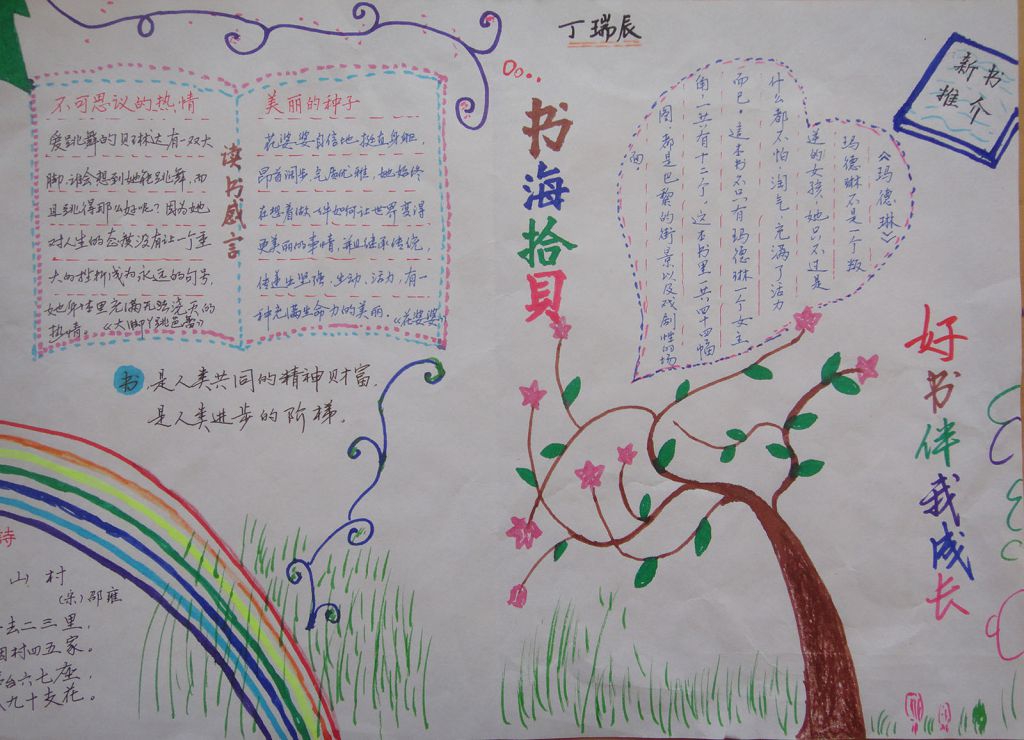 丁瑞辰
不可思议的热情
爱跳舞的贝琳达有一双大
脚，谁会想到她能跳舞，而
且跳得那么好呢？因为她
对人生的态度没有让一个重
大的挫折成为永远的句号，
她身体里充满无浇灭的
热情。《大脚丫跳芭蕾》
读书感言
美丽的种子
花婆婆自信地挺直身躯，
昂首阔步，气质优雅，她始终
在想着做一件如何让世界变得
更美丽的事情，并且继承传统，
传递生坚强、生动、活力，有一
种充满生命力的美丽。《花婆婆》
书，是人类共同的精神财富，
是人类进步的阶梯。
诗
山村
（宋）邵雍
去二三里，
村四五家。
台六七座，
九十支花。
书海拾贝
新书
推介
《玛德琳》
玛德琳不是一个叛
逆的女孩，她只不过是
什么都不怕，淘气，充满了活力
而已，这本书不只有玛德琳一个女主
角一共有十二个，这本书里一共四十四幅
图，都是巴黎的街景以及戏剧性的场
面
好书伴我成长